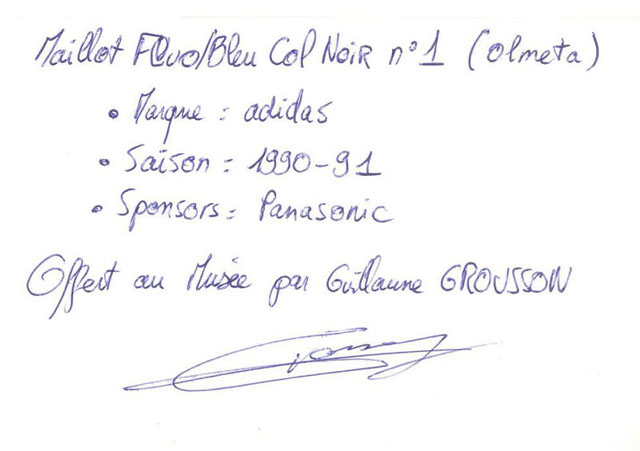 Maillot Fluo/Bleu Col Noir n°1 (Olmeta)
• Marque : adidas
• Saison : 1990-91
• Sponsors : Panasonic
Offert au Musée par Guillaume GROUSSON